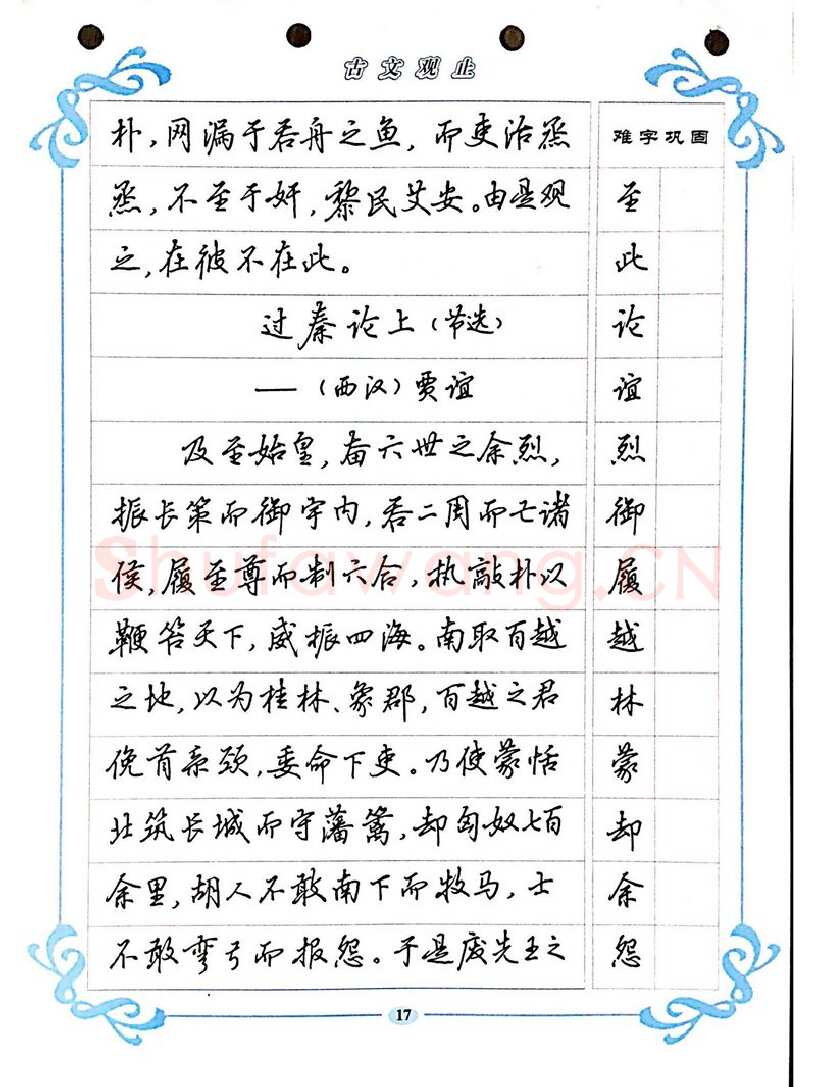 古文观止
朴,网漏于吞舟之鱼,而吏治烝
烝,不至于奸,黎民艾安。由是观
之,在彼不在此。
过秦论上(节选)
——(西汉)贾谊
及至始皇,奋六世之余烈,
振长策而御宇内,吞二周而亡诸
侯,履至尊而制六合,执敲朴以
鞭笞天下,威振四海。南取百越
之地,以为桂林、象郡,百越之君
俛首系颈,委命下吏。乃使蒙恬
北筑长城而守藩篱,却匈奴七百
余里,胡人不敢南下而牧马,士
不敢弯弓而报怨。于是废先王之
难字巩固
至
此
论
谊
烈
御
履
越
林
蒙
却
余
怨
Shufawang.CN
17